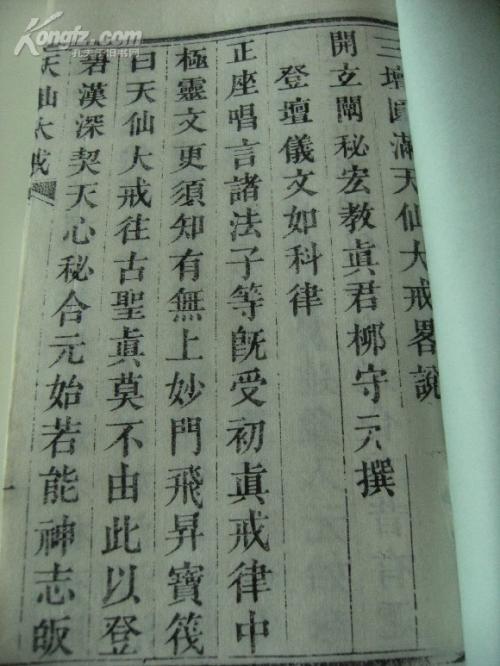 三壇圓滿天仙大戒畧說
開玄闡秘宏教眞君栁守元撰
登壇儀文如科律
正座唱言諸法子等旣受初眞戒律中
極靈文更須知有無上妙門飛昇寶筏
曰天仙大戒往古聖眞莫不由此以登
碧漢深契天心秘合元始若能神志皈
天仙大戒
Kongfz.com
孔夫子旧书网